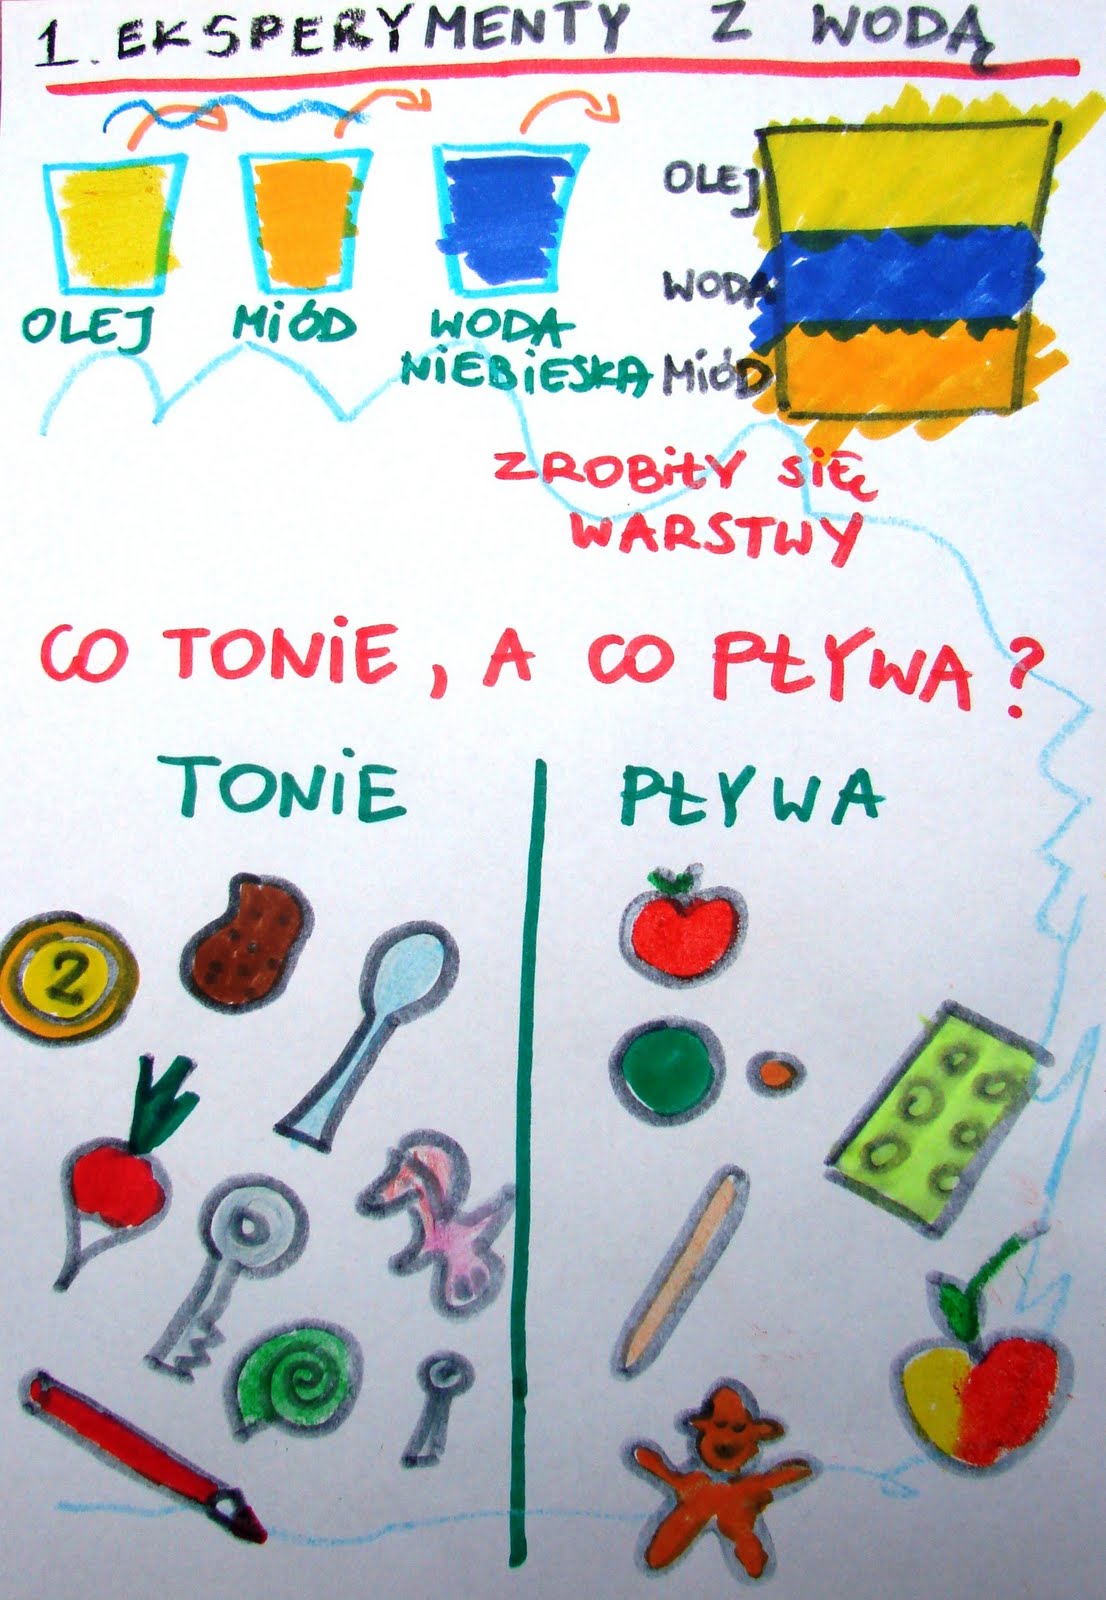 1. EKSPERYMENTY Z WODĄ
OLEJ
MIÓD
WODA
NIEBIESKA
OLEJ
WODA
MIÓD
ZROBIŁY SIĘ
WARSTWY
CO TONIE, A CO PŁYWA?
TONIE
PŁYWA
2